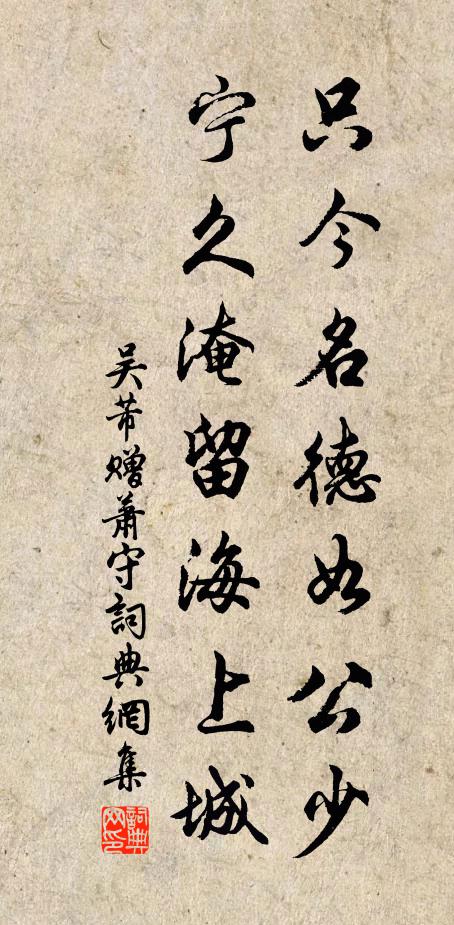 只今名德如公少
宁久淹留海上城
吴芾赠萧守詞典網集
詞典网印